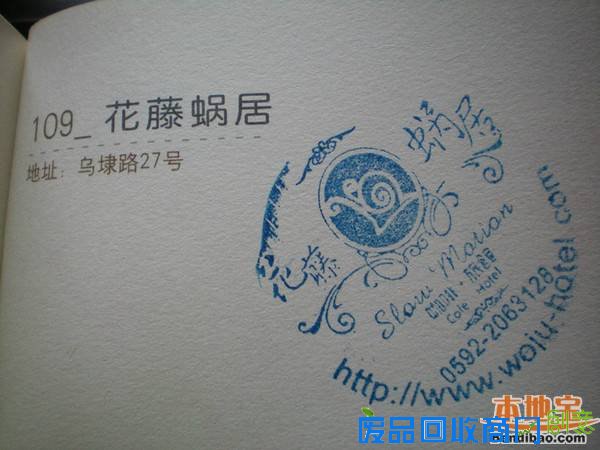 109_ 花藤蜗居
地址：乌埭路27号
花藤
蜗居
Slow Motion
咖啡·旅馆
Cafe Hotel
0592-2063128
http://www.woju-hotel.com
本地宝
Bendibao.com
废品回收商门